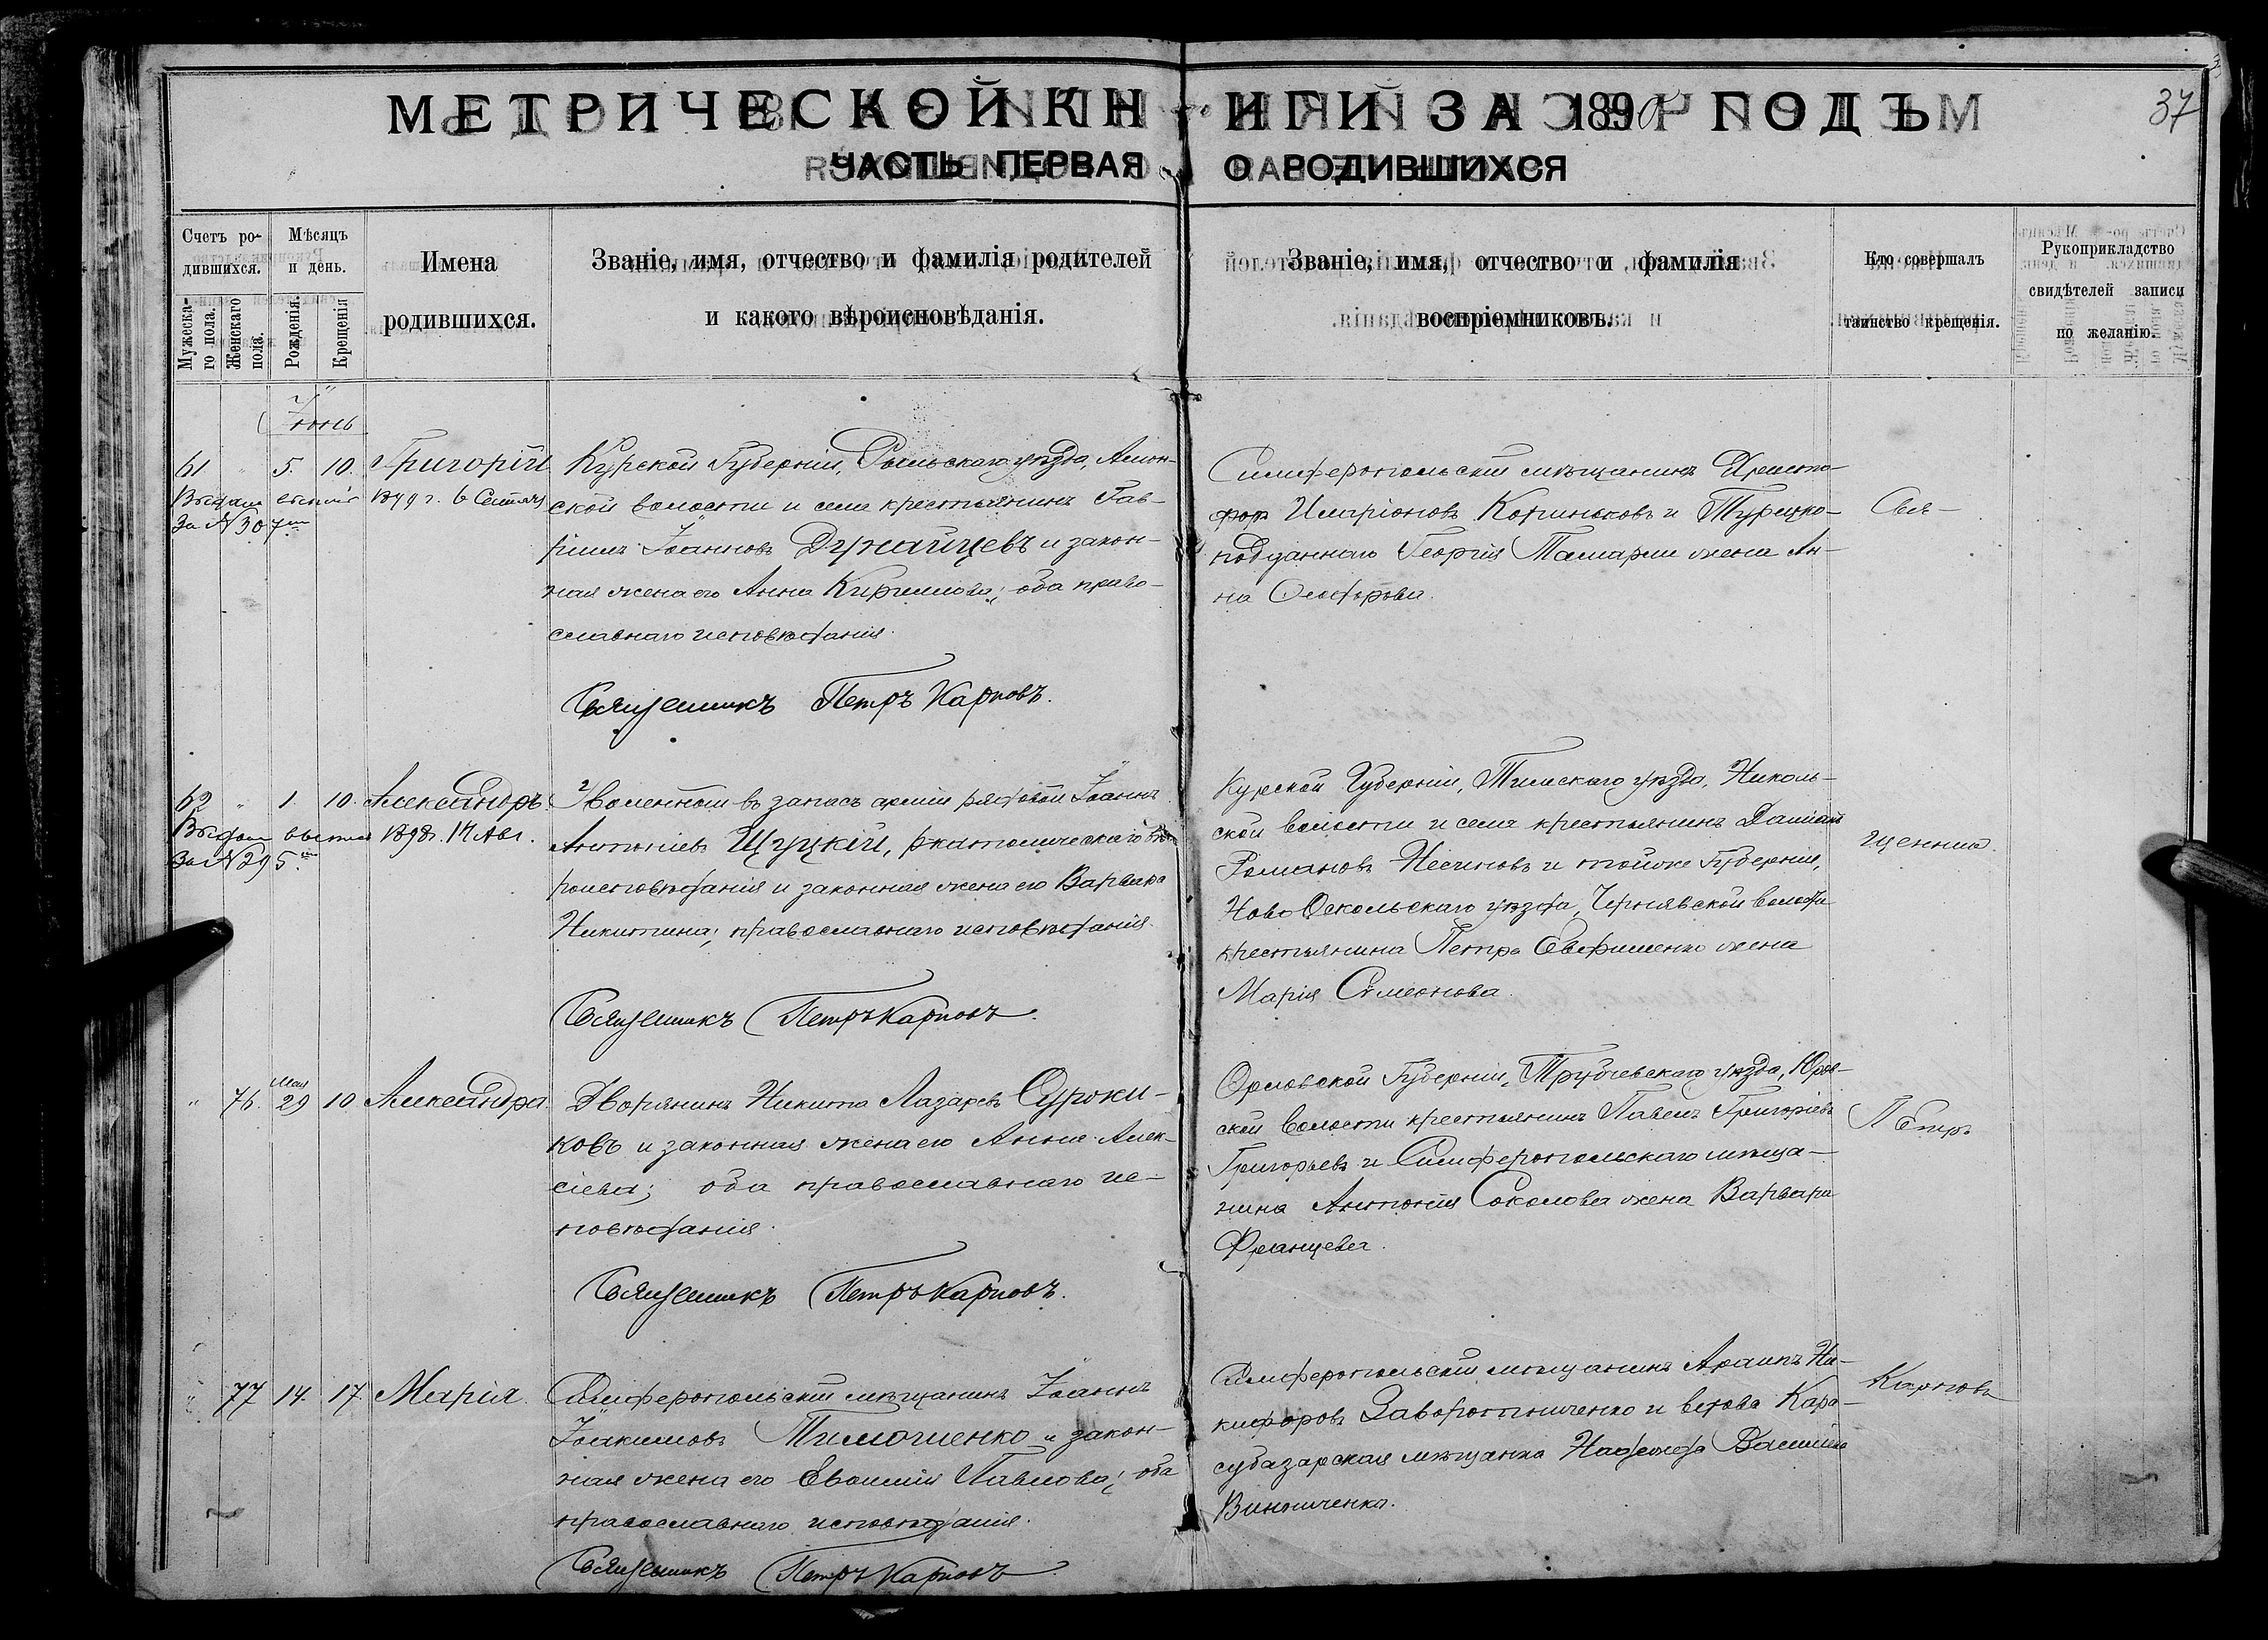 МЕТРИЧЕСКОЙ КНИГИ ЗА 1890 ГОДЪ
37
ЧАСТЬ ПЕРВАЯ О РОДИВШИХСЯ
Счетъ ро-
дившихся.
Мужеска-
го пола.
Женскаго
пола.
Мѣсяцъ
и день.
Рожденія.
Крещенія
Имена
родившихся.
Званіе, имя, отчество и фамилія родителей
и какого вѣроисповѣданія.
Званіе, имя, отчество и фамилія
воспріемниковъ.
Кто совершалъ
таинство крещенія.
Рукоприкладство
свидѣтелей записи
по желанію.
Іюнь
61 " 5. 10. Григорій
1899 г. 6 Сентяб
За № 307
Курской Губерніи, Рыльскаго уѣзда,
ской волости и села крестьянинъ Гав-
ріилъ Іоанновъ и закон-
ная жена его Анна Кириллова; оба право-
славнаго исповѣданія.
Священникъ Петръ Карповъ.
Симферопольскій мѣщанинъ Христо-
форъ Иларіоновъ и Турецко-
подданнаго Георгія жена Ан-
на
Свя-
62 " 1. 10. Александръ.
1898 г. 17 Авг.
За № 295
Уволенный въ запасъ арміи рядовой Іоаннъ
Антоніевъ Щуцкій, р католическаго вѣ-
роисповѣданія и законная жена его Варвара
Никитина; православнаго исповѣданія.
Священникъ Петръ Карповъ.
Курской Губерніи, Тимскаго уѣзда, Николь-
ской волости и села крестьянинъ Даміанъ
Романовъ и тойже Губерніи,
Ново Оскольскаго уѣзда, Чернявской волости
крестьянина Петра Евфименко жена
Марія Сѵмеонова.
щенникъ
" 76. Мая 29 10 Александра.
Дворянинъ Никита Лазаревъ Суроки-
ковъ и законная жена его Анна Алек-
сіева; оба православнаго ис-
повѣданія.
Священникъ Петръ Карповъ.
Орловской Губерніи, Трубчевскаго уѣзда, Юров-
ской волости крестьянинъ Павелъ Григоріевъ
Григорьевъ и Симферопольскаго мѣща-
нина Антонія Соколова жена Варвара
Францева.
Петръ
" 77 14. 17 Марія.
Симферопольскій мѣщанинъ Іоаннъ
Іоакимовъ Тимошенко и закон-
ная жена его Евфимія Павлова; оба
православнаго исповѣданія.
Священникъ Петръ Карповъ.
Симферопольскій мѣщанинъ Архипъ Ни-
кифоровъ Заворотниченко и вдова Кара-
субазарская мѣщанка Надежда Васильева
Винниченко.
Карповъ